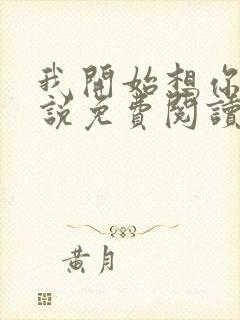 我開始想你
說免費閱讀
黄月